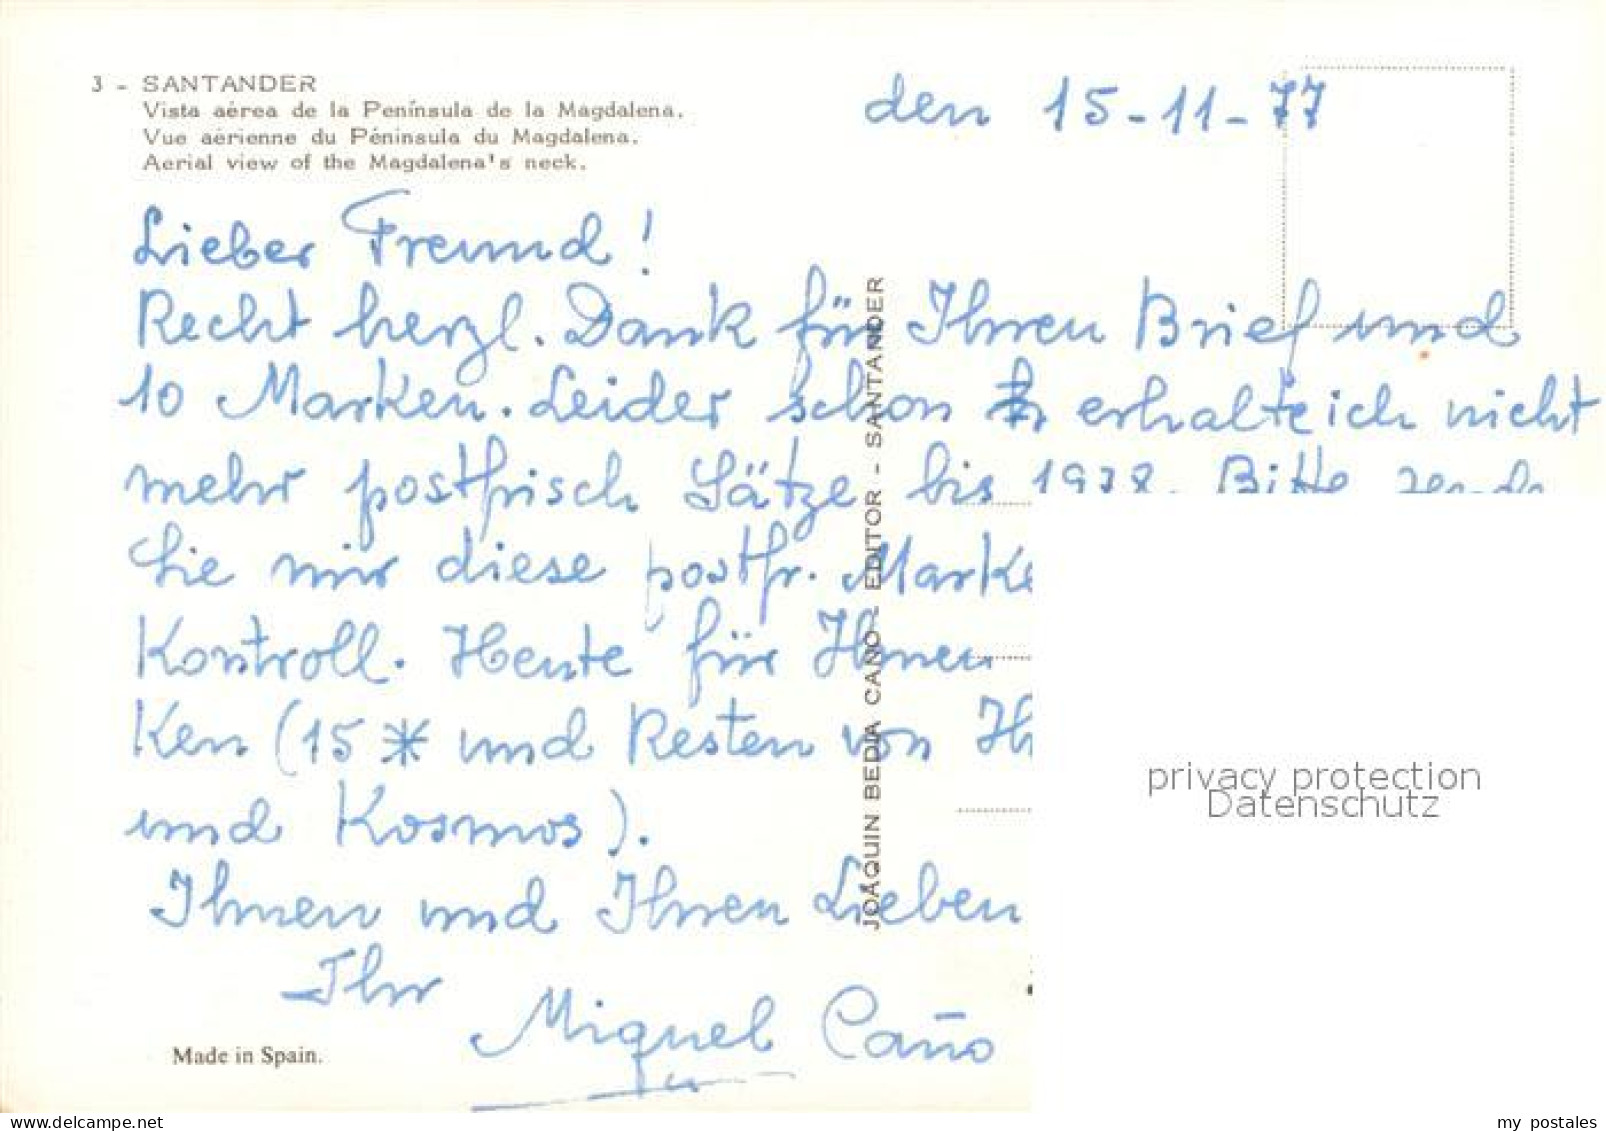 3 - SANTANDER
Vista aérea de la Península de la Magdalena.
Vue aérienne du Péninsula du Magdalena.
Aerial view of the Magdalena's neck.
den 15-11-77
Lieber Freund!
Recht herzl. Dank für Ihren Brief und
10 Marken. Leider schon erhalte ich nicht
mehr postfrisch Sätze bis 1978. Bitte
Sie mir diese postfr. Marke
Kontroll. Heute für Ihnen
Ken (15 * und Resten von Ih
und Kosmos).
Ihnen und Ihren Lieben
Ihr
Miguel Caño
JOAQUIN BEDIA CANO - EDITOR - SANTANDER
Made in Spain.
privacy protection
Datenschutz
www.delcampe.net
my_postales